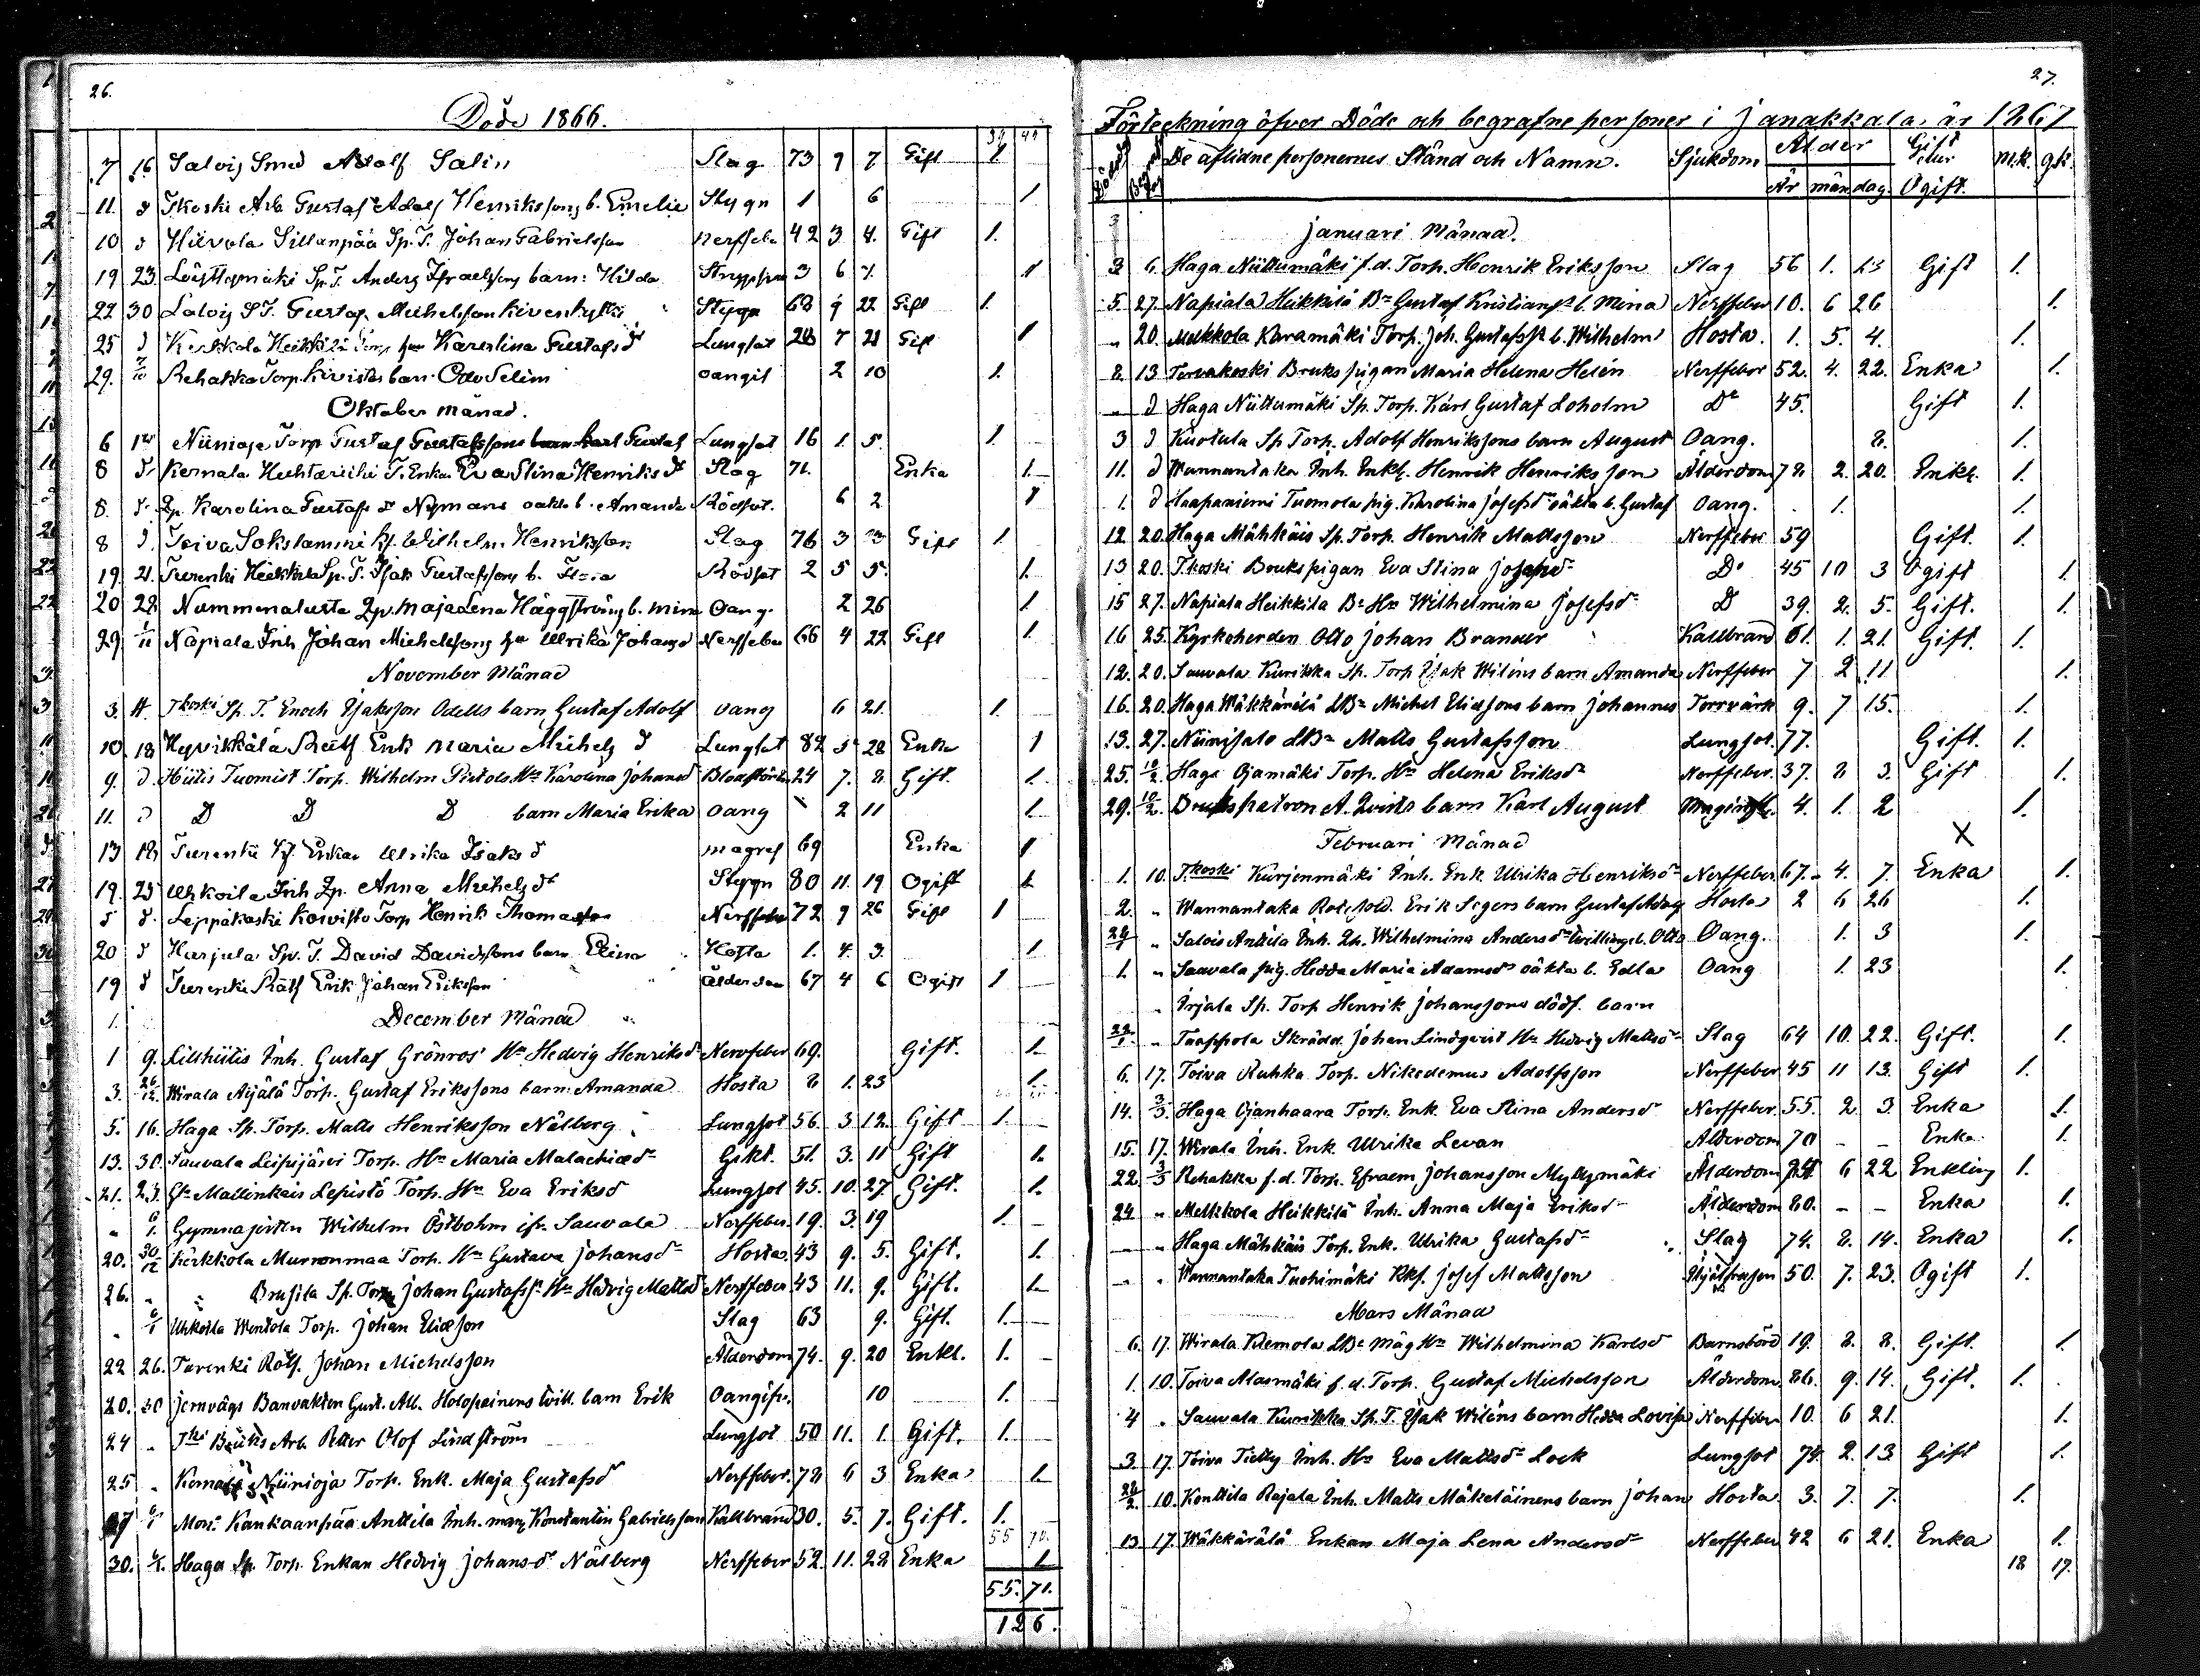 26.
Döde 1866.
7 16 Salois Smed Adolf Salin Slag 73 9 7 Gift 1.
11. d Tkoski Arb Gustaf Adolf Henrikssons b. Emelie Stygn 1 6 1
10 d Hiivola Sillanpää Sp. T. Johan Gabrielsson Nerffeb 42 3 4. Gift 1.
19 23 Sp. T. Anders Israelssons barn: Hilda 3 6 1
22 30 Salois S T. Gustaf Michelsson Stygn 68 9 22 Gift 1.
25 d Heikkilä Torp hu Karolina Gustafsdr Lungsot 28 7 21 Gift 1
29. Rehakka Torp. barn Otto Selim oangif 2 10 1.
Oktober månad.
6 Niinioja Torp Gustaf Gustafssons Lungsot 16 1. 5. 1.
8 d. Kernala T. Enka Eva Stina Henriksdr Slag 71. Enka 1.
8. d. Qp. Karolina Gustafs dr Nymans oäkta b. Amanda Rödsot. 6 2 1
8 d. Toiva Wilhelm Henriksson Slag 76 3 Gift 1.
19. 21. Turenki Heikkilä Sp. T. Isak Gustafssons b. Rödsot 2 5 5. 1.
20 28 Nummenalusta Qp. Maja Lena Häggströms b. Mina Oang. 2 26 1.
29 1/11 Napiala Inh Johan Michelssons hu Ulrika Johansd Nerffeber 66 4 22 Gift 1.
November Månad
3. 11. Tkoski Sp. T. Enoch Isaksson Odells barn Gustaf Adolf oang 6 21. 1.
10 18 Hyvikkälä Rätf Enk Maria Michels d Lungsot 82 5 28 Enka 1
9. d. Hiitis Tuomist Torp. Wilhelm Hu Karolina Johansd 24 7. 8. Gift. 1.
11. D D D D barn Maria Erika oang 2 11 1.
13 18 Turenki Enkan Ulrika Isaks d magref 69 Enka 1
19. 25 Uhkoila Inh Qp. Anna Michelsdr Stygn 80 11. 19 Ogift 1.
d d. Leppäkoski Koivisto Torp Henrik Thomasson Nerffeber 72 9 26 Gift 1
20 d Harjula Sp. T. David Davidssons barn Elina Hosta 1. 4. 3. 1.
19 d Turenki Rätf Erik Johan Eriksson ålderdom 67 4 6 Ogift 1
1. December Månad
1 9. Lillhiitis Inh. Gustaf Grönroos Hu Hedvig Henriksdr Nervfeber 69. Gift. 1.
3. 26/12 Wirala Äijälä Torp. Gustaf Erikssons barn Amanda Hosta 8 1. 23 1.
5. 16. Haga Sp. Torp. Matts Henriksson Nälberg Lungsot 56. 3. 12. Gift 1.
13. 30. Sauvala Leipijärvi Torp. Hu Maria Malachiædr Gikt. 51. 3. 11 Gift 1.
21. 23. Mallinkais Lepistö Torp. Hu Eva Eriksd Lungsot 45. 10. 27. Gift. 1.
„ 6/1. Gymnasisten Wilhelm Östbohm ifr. Sauvala Nerffeber. 19. 3. 19 1.
20. 30/12 Kerkkola Murronmaa Torp. Hu Gustava Johansdr Hosta. 43 9. 5. Gift. 1.
26. „ „ Brusila Sp. Torp Johan Gustafss. Hu Hedvig Mattsd Nerffeber 43 11. 9. Gift. 1.
„ 6/1 Uhkoila Wentola Torp. Johan Eliæson Slag 63 9. Gift. 1.
22 26. Turenki Rotf. Johan Michelsson Ålderdom 74. 9. 20 Enkl. 1.
20. 30 Jernvägs Banvakten Gust. Alb. Holopainens tvill. barn Erik Oangifv. 10 1.
24 „ Tki Bruks Arb. Petter Olof Lindström Lungsot 50 11. 1. Gift. 1.
25 „ Kernala Niinioja Torp. Enk. Maja Gustafsdr Nerffeber. 78 6 3 Enka 1.
27 6/1 Kankaanpää Anttila Inh. man Konstantin Gabrielsson Kallbrand 30. 5. 7. Gift. 1.
55 70.
30. 6/1. Haga Sp. Torp. Enkan Hedvig Johansdr Nälberg Nerffeber 52. 11. 28 Enka 1.
55. 71.
126.
27.
Förteckning öfver Döde och begrafne personer i Janakkala, år 1867
De aflidne personernes Stånd och Namn. Sjukdom Ålder Gift eller Ogift. m.k. q.k.
År mån dag.
Januari Månad.
3 6. Haga Niittumäki f.d. Torp. Henrik Eriksson Slag 56 1. 23 Gift 1.
5. 27. Napiala Heikkilä Bn Gustaf Kristianss. b. Mina Nerffeber 10. 6 26 1.
„ 20. Melkkola Karamäki Torp. Joh. Gustafss. b. Wilhelm Hosta. 1. 5. 4. 1.
8. 13 Tervakoski Bruks pigan Maria Helena Helén Nerffeber 52. 4. 22. Enka 1.
„ d Haga Niittumäki Sp. Torp. Karl Gustaf Loholm Do 45. Gift 1.
3 d Kuotula Sp Torp. Adolf Henrikssons barn August Oang. 8. 1.
11. d Wannantaka Inh. Enkl. Henrik Henriksson Ålderdom 78 2. 20. Enkl. 1.
1. d Haapaniemi Tuomola pig. Karolina Josefsdr oäkta b. Gustaf Oang. 1. 1.
12 20. Haga Mähkäis Sp. Torp. Henrik Mattsson Nerffeber 59 Gift. 1.
13 20. Tkoski Brukspigan Eva Stina Josefsdr Do 45 10 3 Ogift 1.
15 27. Napiala Heikkilä Bn Hu Wilhelmina Josefsdr D 39. 2. 5. Gift. 1.
16 25. Kyrkoherden Otto Johan Brander Kallbrand 61. 1. 21. Gift. 1.
12. 20. Sauvala Kurikka Sp. Torp Isak Wiléns barn Amanda Nerffeber 7 2 11 1.
16. 20. Haga Wäkkärälä LBn Michel Eliæssons barn Johannes Torrvärk 9. 7 15. 1.
13. 27. Niinisalo LBn Matts Gustafsson Lungsot. 77. Gift. 1.
25. 10/2. Haga Ojamäki Torp. Hu Helena Eriksdr Nerffeber. 37. 8 3. Gift 1.
29. 10/2. Brukspatron A. Qvists barn Karl August 4. 1. 2 1.
Februari Månad X
1. 10. Tkoski Kurjenmäki Inh. Enk Ulrika Henriksdr Nerffeber 67. 4. 7. Enka 1.
2. „ Wannantaka Rotesold. Erik Segers barn Gustaf Adolf Hosta 2 6 26 1.
„ Salois Anttila Inh. Qp. Wilhelmina Andersdr tvillingb. Otto Oang. 1. 3 1.
1. „ Sauvala pig. Hedda Maria Adamsdr oäkta b. Edla Oang 1. 23 1.
„ Irjala Sp. Torp Henrik Johanssons dödf. barn
22/1. „ Taappola Skrädd. Johan Lindqvist Hu Hedvig Mattsdr Slag 64 10. 22. Gift. 1.
6. 17. Toiva Ruhka Torp. Nikodemus Adolfsson Nerffeber 45 11 13. Gift 1.
14. 3/3. Haga Ojanhaara Torp. Enk. Eva Stina Andersdr Nerffeber. 55. 2. 3. Enka 1.
15. 17. Wirala Inh. Enk Ulrika Levan Ålderdom 70 - - Enka 1.
22. 3/3 Rehakka f.d. Torp. Efraem Johansson Myllymäki Ålderdom 6 22 Enkling 1.
24 „ Melkkola Heikkilä Inh. Anna Maja Eriksdr Ålderdom 80. - - Enka 1.
„ „ Haga Mähkäis Torp. Enk. Ulrika Gustafsdr Slag 74. 8. 14. Enka 1.
„ „ Wannantaka Tuohimäki Josef Mattsson 50. 7. 23. Ogift 1.
Mars Månad
6. 17. Wirala Klemola LBn Måg Hu Wilhelmina Karlsd Barnsbörd 19. 8. 8. Gift. 1.
1. 10. Toiva Alasmäki f.d. Torp. Gustaf Michelsson Ålderdom 86. 9. 14. Gift. 1.
4 „ Sauvala Kurikka Sp. T. Isak Wiléns barn Hedda Lovisa Nerffeber 10. 6 21. 1.
3 17. Toiva Inh. Hu Eva Mattsdr Lock Lungsot 74. 2. 13 Gift 1.
10. Konttila Rajala Inh. Matts Mäkeläinens barn Johan Hosta 3. 7. 7. 1.
13 17. Wäkkärälä Enkan Maja Lena Andersdr Nerffeber 42 6 21. Enka 1.
18 17.